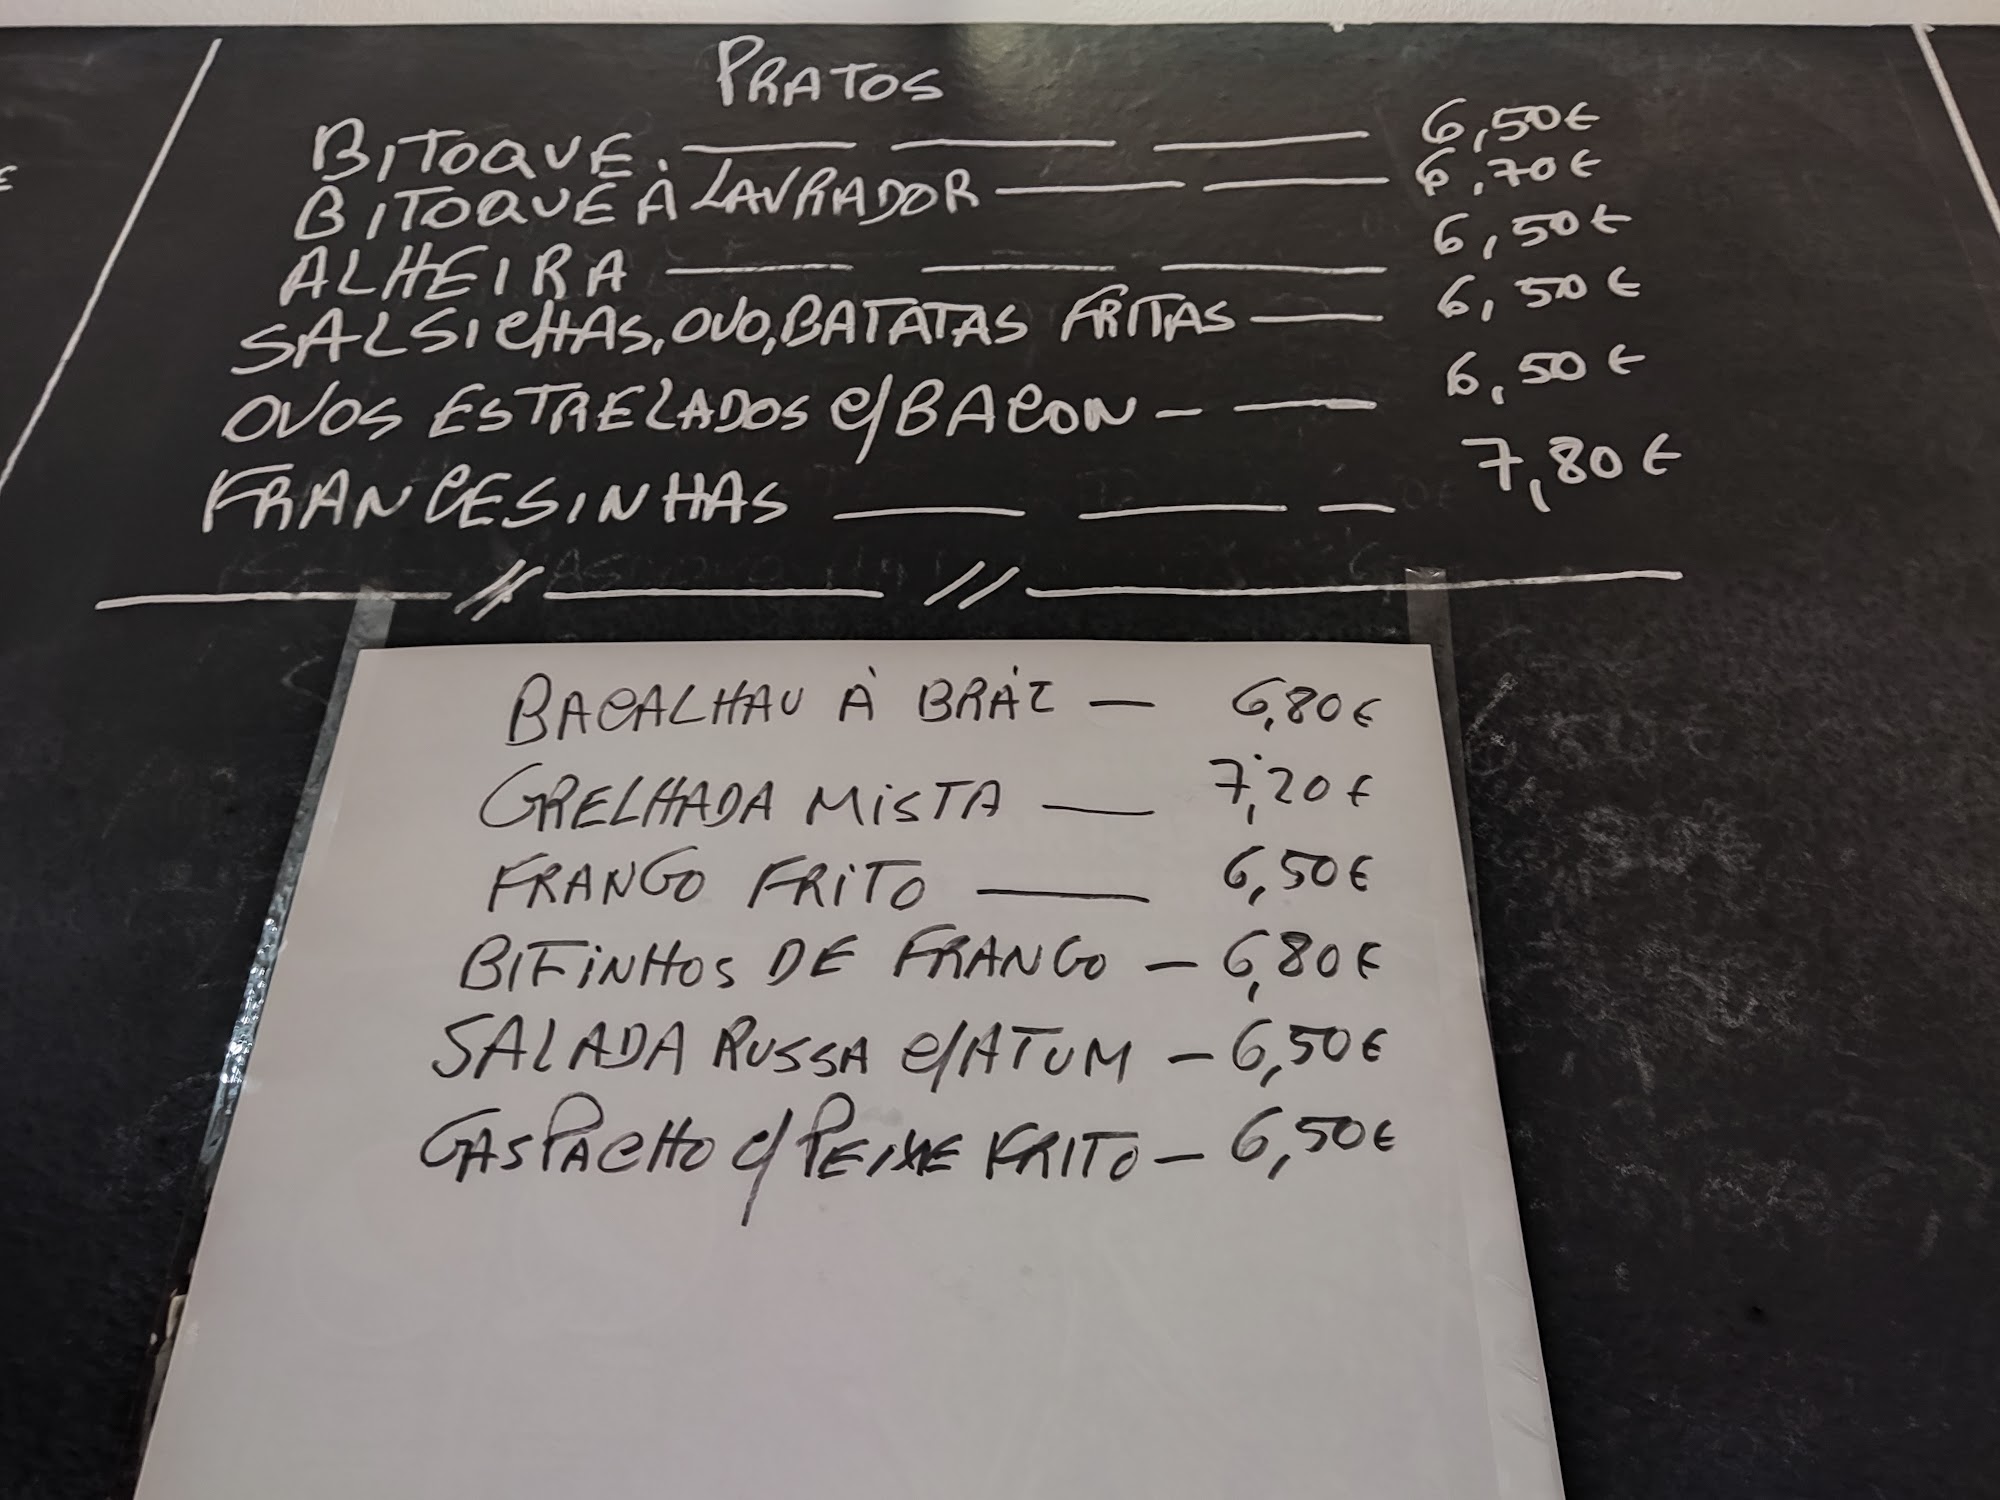 PRATOS
BITOQUE. — — — 6,50€
BITOQUE À LAVRADOR — — 6,70€
ALHEIRA — — — 6,50€
SALSICHAS, OVO, BATATAS FRITAS — 6,50€
OVOS ESTRELADOS C/BACON - — 6,50€
FRANCESINHAS — — — 7,80€
BACALHAU À BRÁZ — 6,80€
GRELHADA MISTA — 7,20€
FRANGO FRITO — 6,50€
BIFINHOS DE FRANGO — 6,80€
SALADA RUSSA C/ATUM — 6,50€
GASPACHO C/PEIXE FRITO — 6,50€